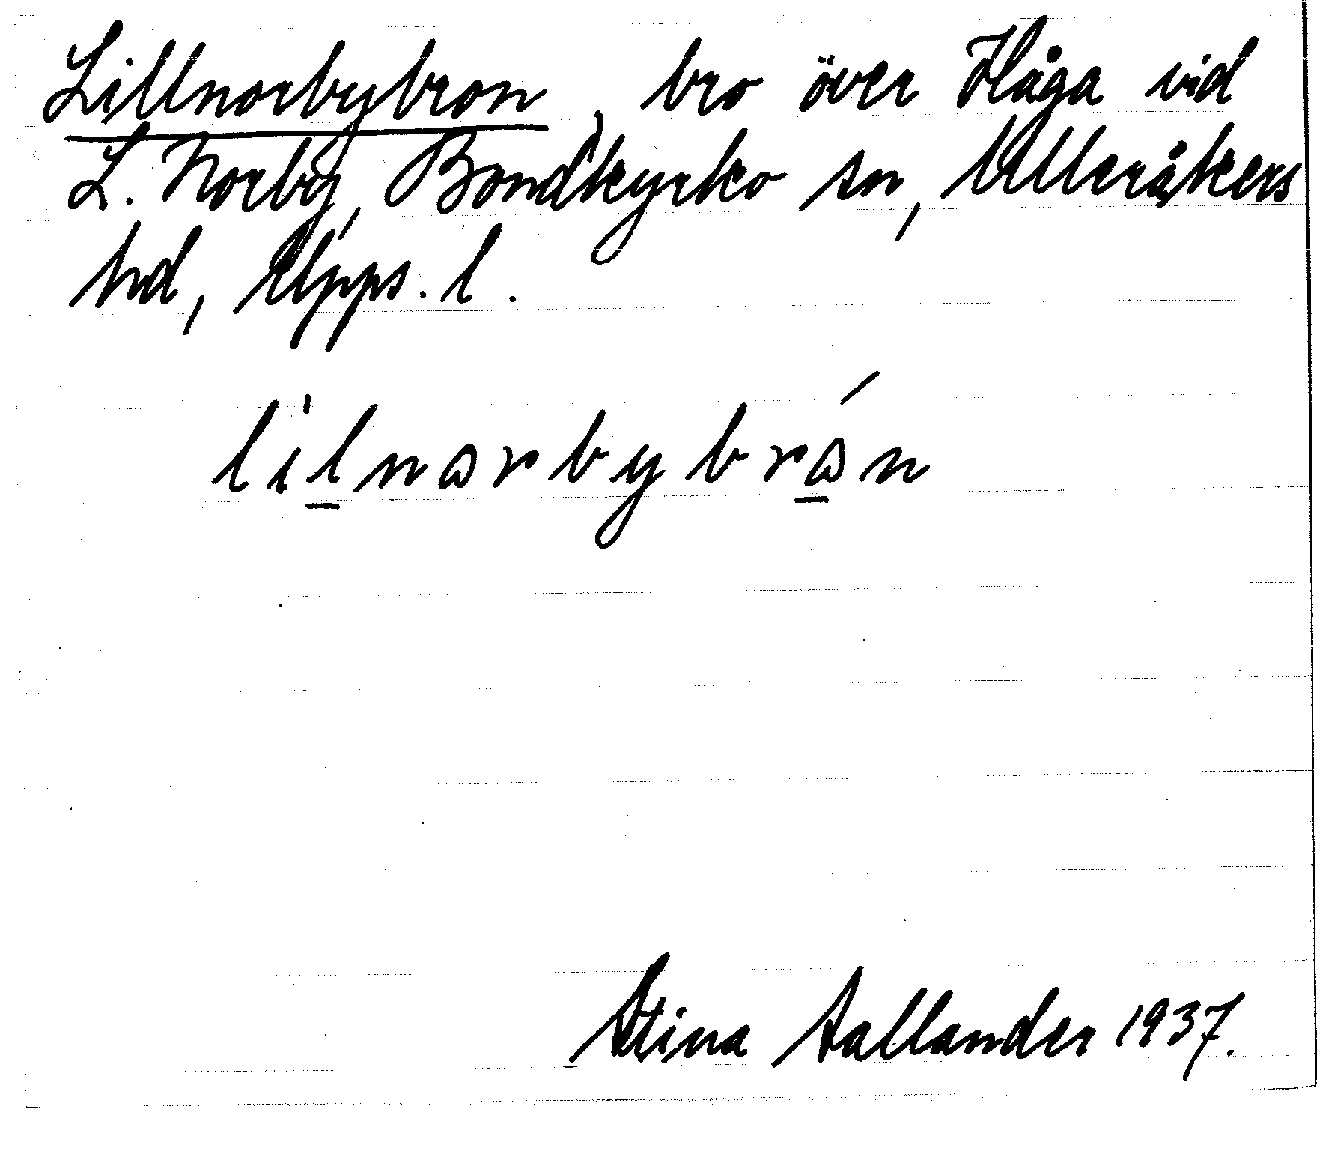 Lillnorbybron, bro över Håga vid
L. Norby, Bondkyrko sn, Ulleråkers
hd, Upps. l.
lìlnɷrbybrɷ́n
Stina Sallander 1937.